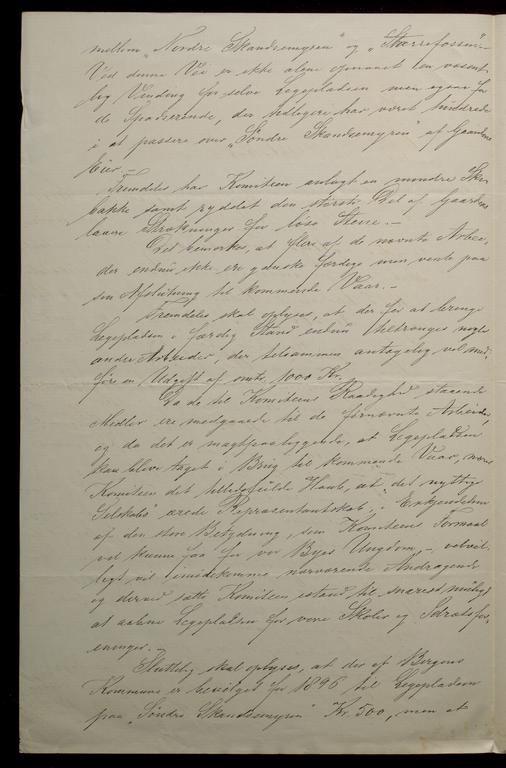 mellem „Nordre Skandsemyren” og „Storrefossen”.–
Ved denne Vei er ikke alene opnaaet en væsent-
lig Vinding for selve Legepladsen men ogsaa for
de Spadserende, der tidligere har været hindrede
i at passere over „Søndre Skandsemyren” af Gaardens
Eier.–
Fremdeles har Komiteen anlagt en mindre Ski-
bakke samt ryddet den største Del af Gaardens
lavere Strækninger for løse Stene.–
Det bemærkes, at flere af de nævnte Arbei-
der endnu ikke ere ganske færdige men vente paa
sin Afslutning til kommende Vaar.–
Fremdeles skal oplyses, at der for at bringe
Legepladsen i færdig Stand endnu tiltrænges nogle
andre Arbeider, der tilsammen antagelig vil med-
føre en Udgift af omtr. 1000 Kr.
Da de til Komiteens Raadighed staaende
Midler ere medgaaede til de førnævnte Arbeider,
og da det er magtpaaliggende, at Legepladsen
kan blive taget i Brug til kommende Vaar, nærer
Komiteen det tillidsfulde Haab, at „det nyttige
Selskabs” ærede Repræsentantskab, i Erkjendelsen
af den store Betydning, som Komiteens Formaal
vil kunne faa for vor Byes Ungdom, – velvil-
ligt vil imødekomme nærværende Andragende
og derved sætte Komiteen istand til snarest muligt
at aabne Legepladsen for vore Skoler og Idrætsfor-
eninger.–
Sluttelig skal oplyses, at der af Bergens
Kommune er bevilget for 1896 til Legepladsen
paa „Søndre Skandsemyren” Kr. 500, men at